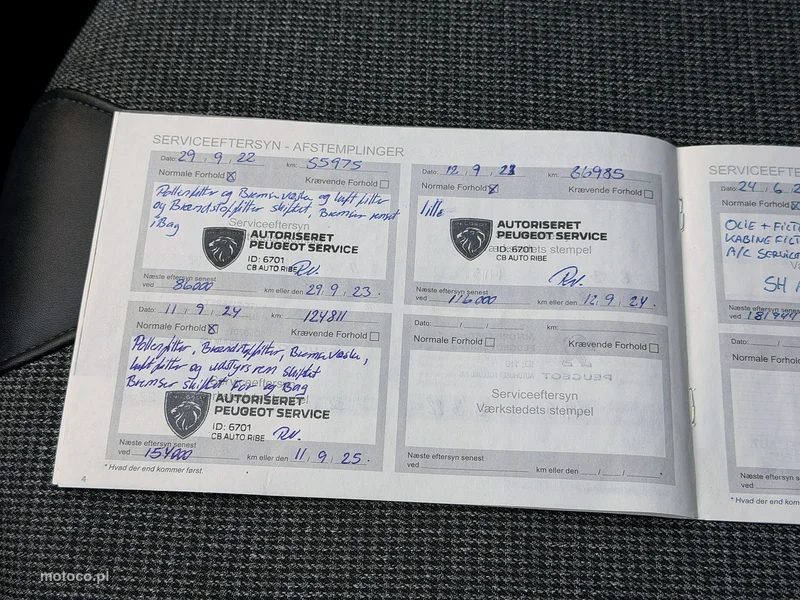 SERVICEEFTERSYN - AFSTEMPLINGER
Dato: 29 , 9 , 22 km: 55975
Normale Forhold ☒ Krævende Forhold ☐
Pollenfilter og Bremsevæske og luftfilter
og Brændstoffilter skiftet, Bremser renset
i Bag
Serviceeftersyn
AUTORISERET
PEUGEOT SERVICE
ID: 6701
CB AUTO RIBE
Næste eftersyn senest
ved 86000 km eller den 29 , 9 , 23 .
Dato: 12 , 9 , 23 km: 86985
Normale Forhold ☒ Krævende Forhold ☐
lille
AUTORISERET
PEUGEOT SERVICE
ID: 6701
CB AUTO RIBE
Næste eftersyn senest
ved 116000 km eller den 12 , 9 , 24 .
Dato: 11 , 9 , 24 km: 124811
Normale Forhold ☒ Krævende Forhold ☐
Pollenfilter, Brændstoffilter, Bremsevæske,
luftfilter og skiftet
Bremser skiftet For og Bag
Serviceeftersyn
AUTORISERET
PEUGEOT SERVICE
ID: 6701
CB AUTO RIBE
Næste eftersyn senest
ved 154000 km eller den 11 , 9 , 25 .
* Hvad der end kommer først.
4
Dato: / / km:
Normale Forhold ☐ Krævende Forhold ☐
Serviceeftersyn
Værkstedets stempel
Næste eftersyn senest
ved km eller den / /
SERVICEEFTE
Dato: 24 , 6 , 2
Normale Forhold ☒
OLIE + FILT
KABINEFILT
A/C SERVICE
SH
Næste eftersyn senest
ved 181944
Dato: /
Normale Forhold
Næste eftersyn senest
ved
* Hvad der end kom
motoco.pl